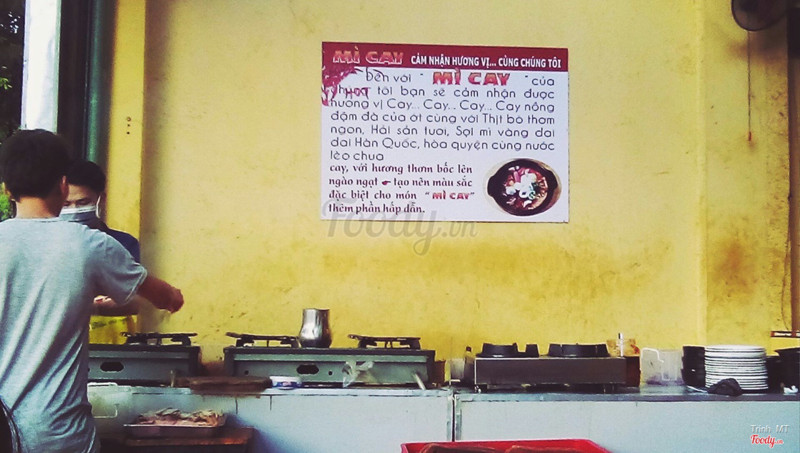 MÌ CAY CẢM NHẬN HƯƠNG VỊ... CÙNG CHÚNG TÔI
Đến với " MÌ CAY " của
HOT chúng tôi bạn sẽ cảm nhận được
hương vị Cay... Cay... Cay... Cay nồng
đậm đà của ớt cùng với Thịt bò thơm
ngon, Hải sản tươi, Sợi mì vàng dai
dai Hàn Quốc, hòa quyện cùng nước
lèo chua
cay, với hương thơm bốc lên
ngào ngạt tạo nên màu sắc
đặc biệt cho món " MÌ CAY"
thêm phần hấp dẫn.
Foody.vn
Trinh_MT
Foody.vn